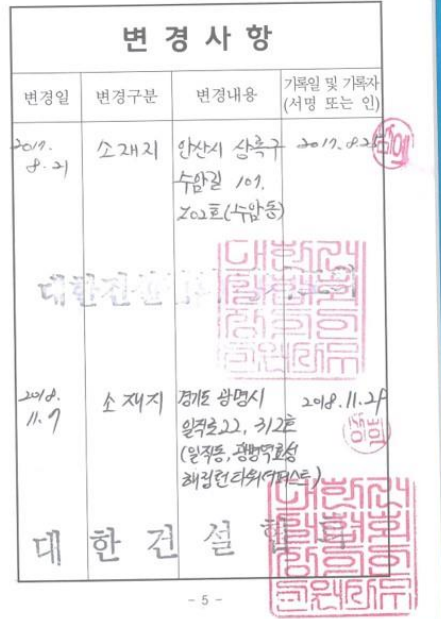 변경사항
변경일 변경구분 변경내용 기록일 및 기록자
(서명 또는 인)
2017.
8.21
소재지
안산시 상록구
수암길 101.
202호(수암동)
2017.8.25
대한건설협회
2018.
11.7
소재지
경기도 광명시
일직로22, 312호
(일직동, 광명역효성
해링턴타워더퍼스트)
2018.11.29
대한건설협회
- 5 -